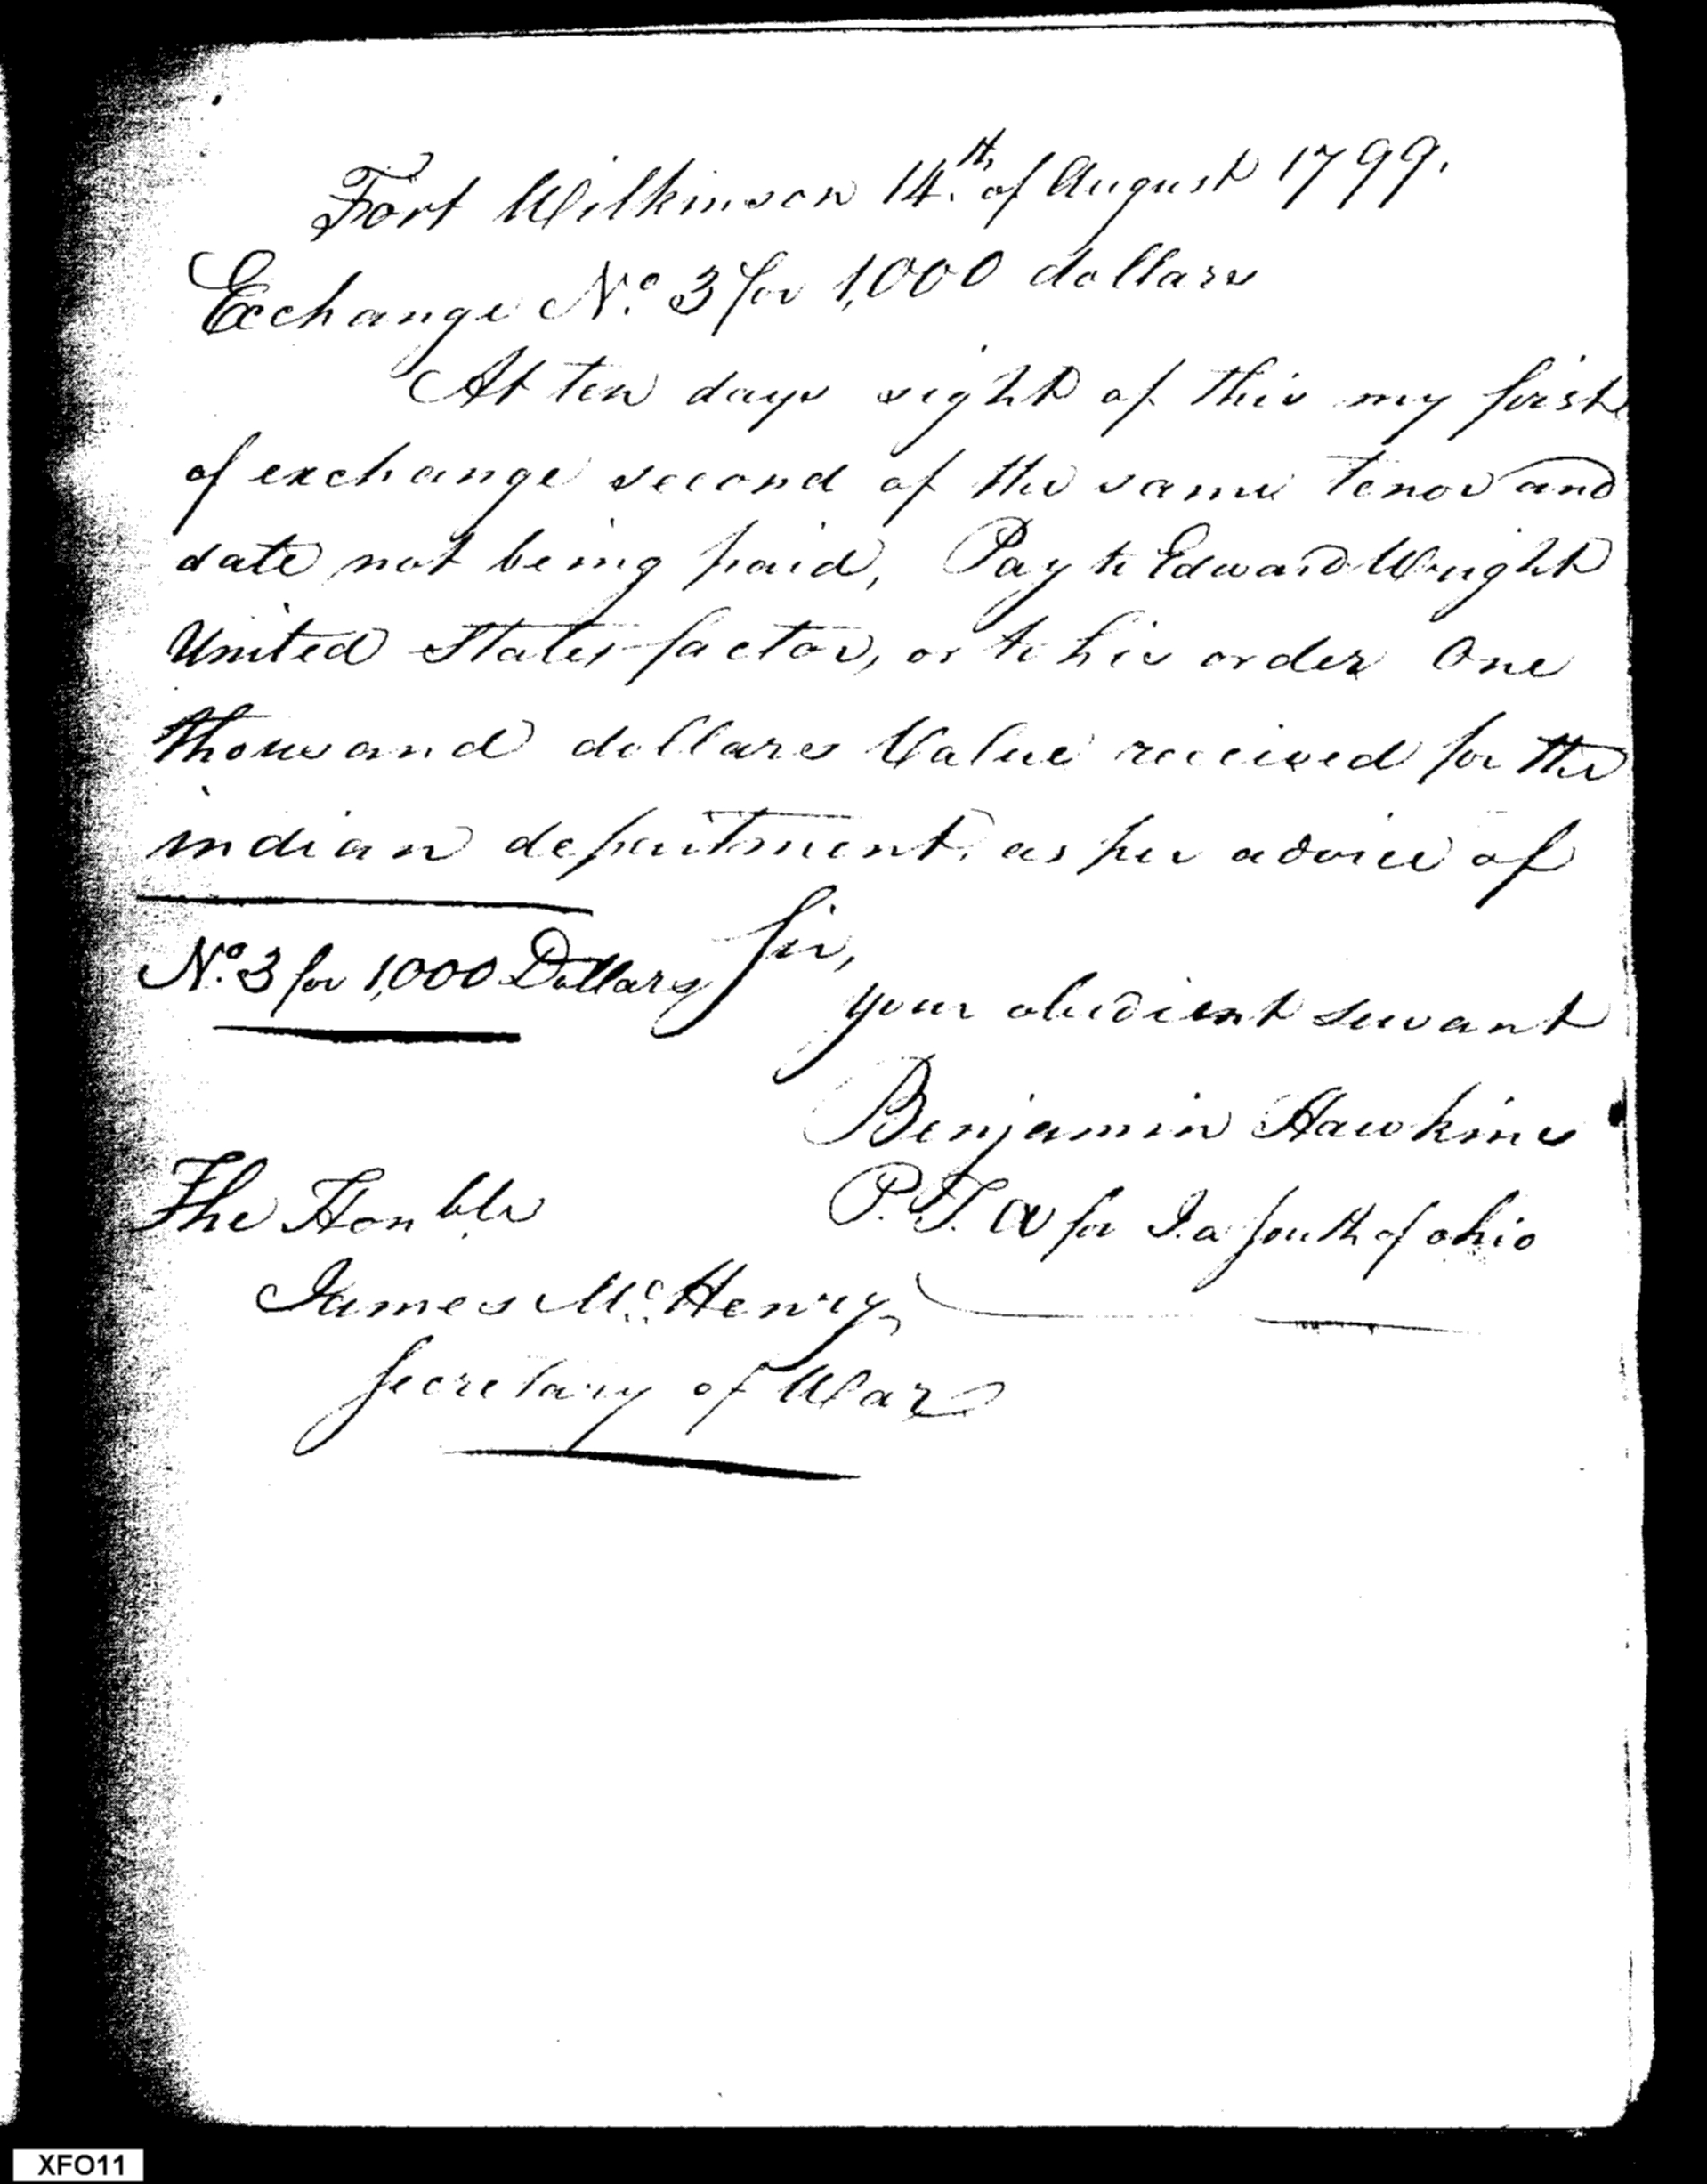 Fort Wilkinson 14.th of August 1799.
Exchange No. 3 for 1,000 dollars
At ten days sight of this my first
of exchange second of the same tenor and
date not being paid, Pay to Edward Wright
United States factor, or to his order One
thousand dollars Value received for the
indian department, as per advice of
Sir,
No. 3 for 1,000 Dollars
your obedient servant
Benjamin Hawkins
P. T. A for I.a South of ohio
The Honble.
James Mc. Henry
Secretary of War
XFO11